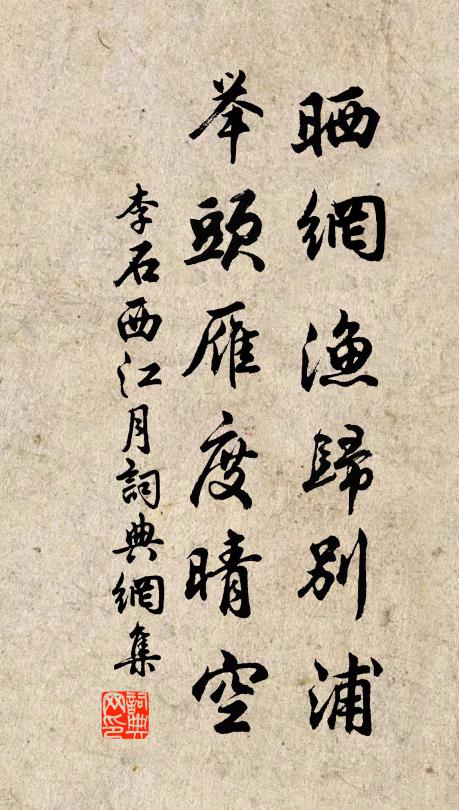 晒網漁歸別浦
举頭雁度晴空
李石西江月詞典網集
詞典網印